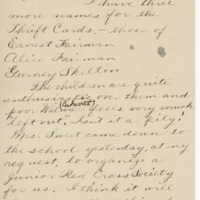 I have three
more names for the
Thrift Cards, – those of
Ernest Fairman
Alice Fairman
Gurney Skelton
The children are quite
enthusiastic over them and
poor Wilmer feels very much
"left out". Isn't it a pity!
Mrs. Sweet came down to
the school yesterday, at my
request, to organize a
Junior Red Cross Society
for us. I think it will